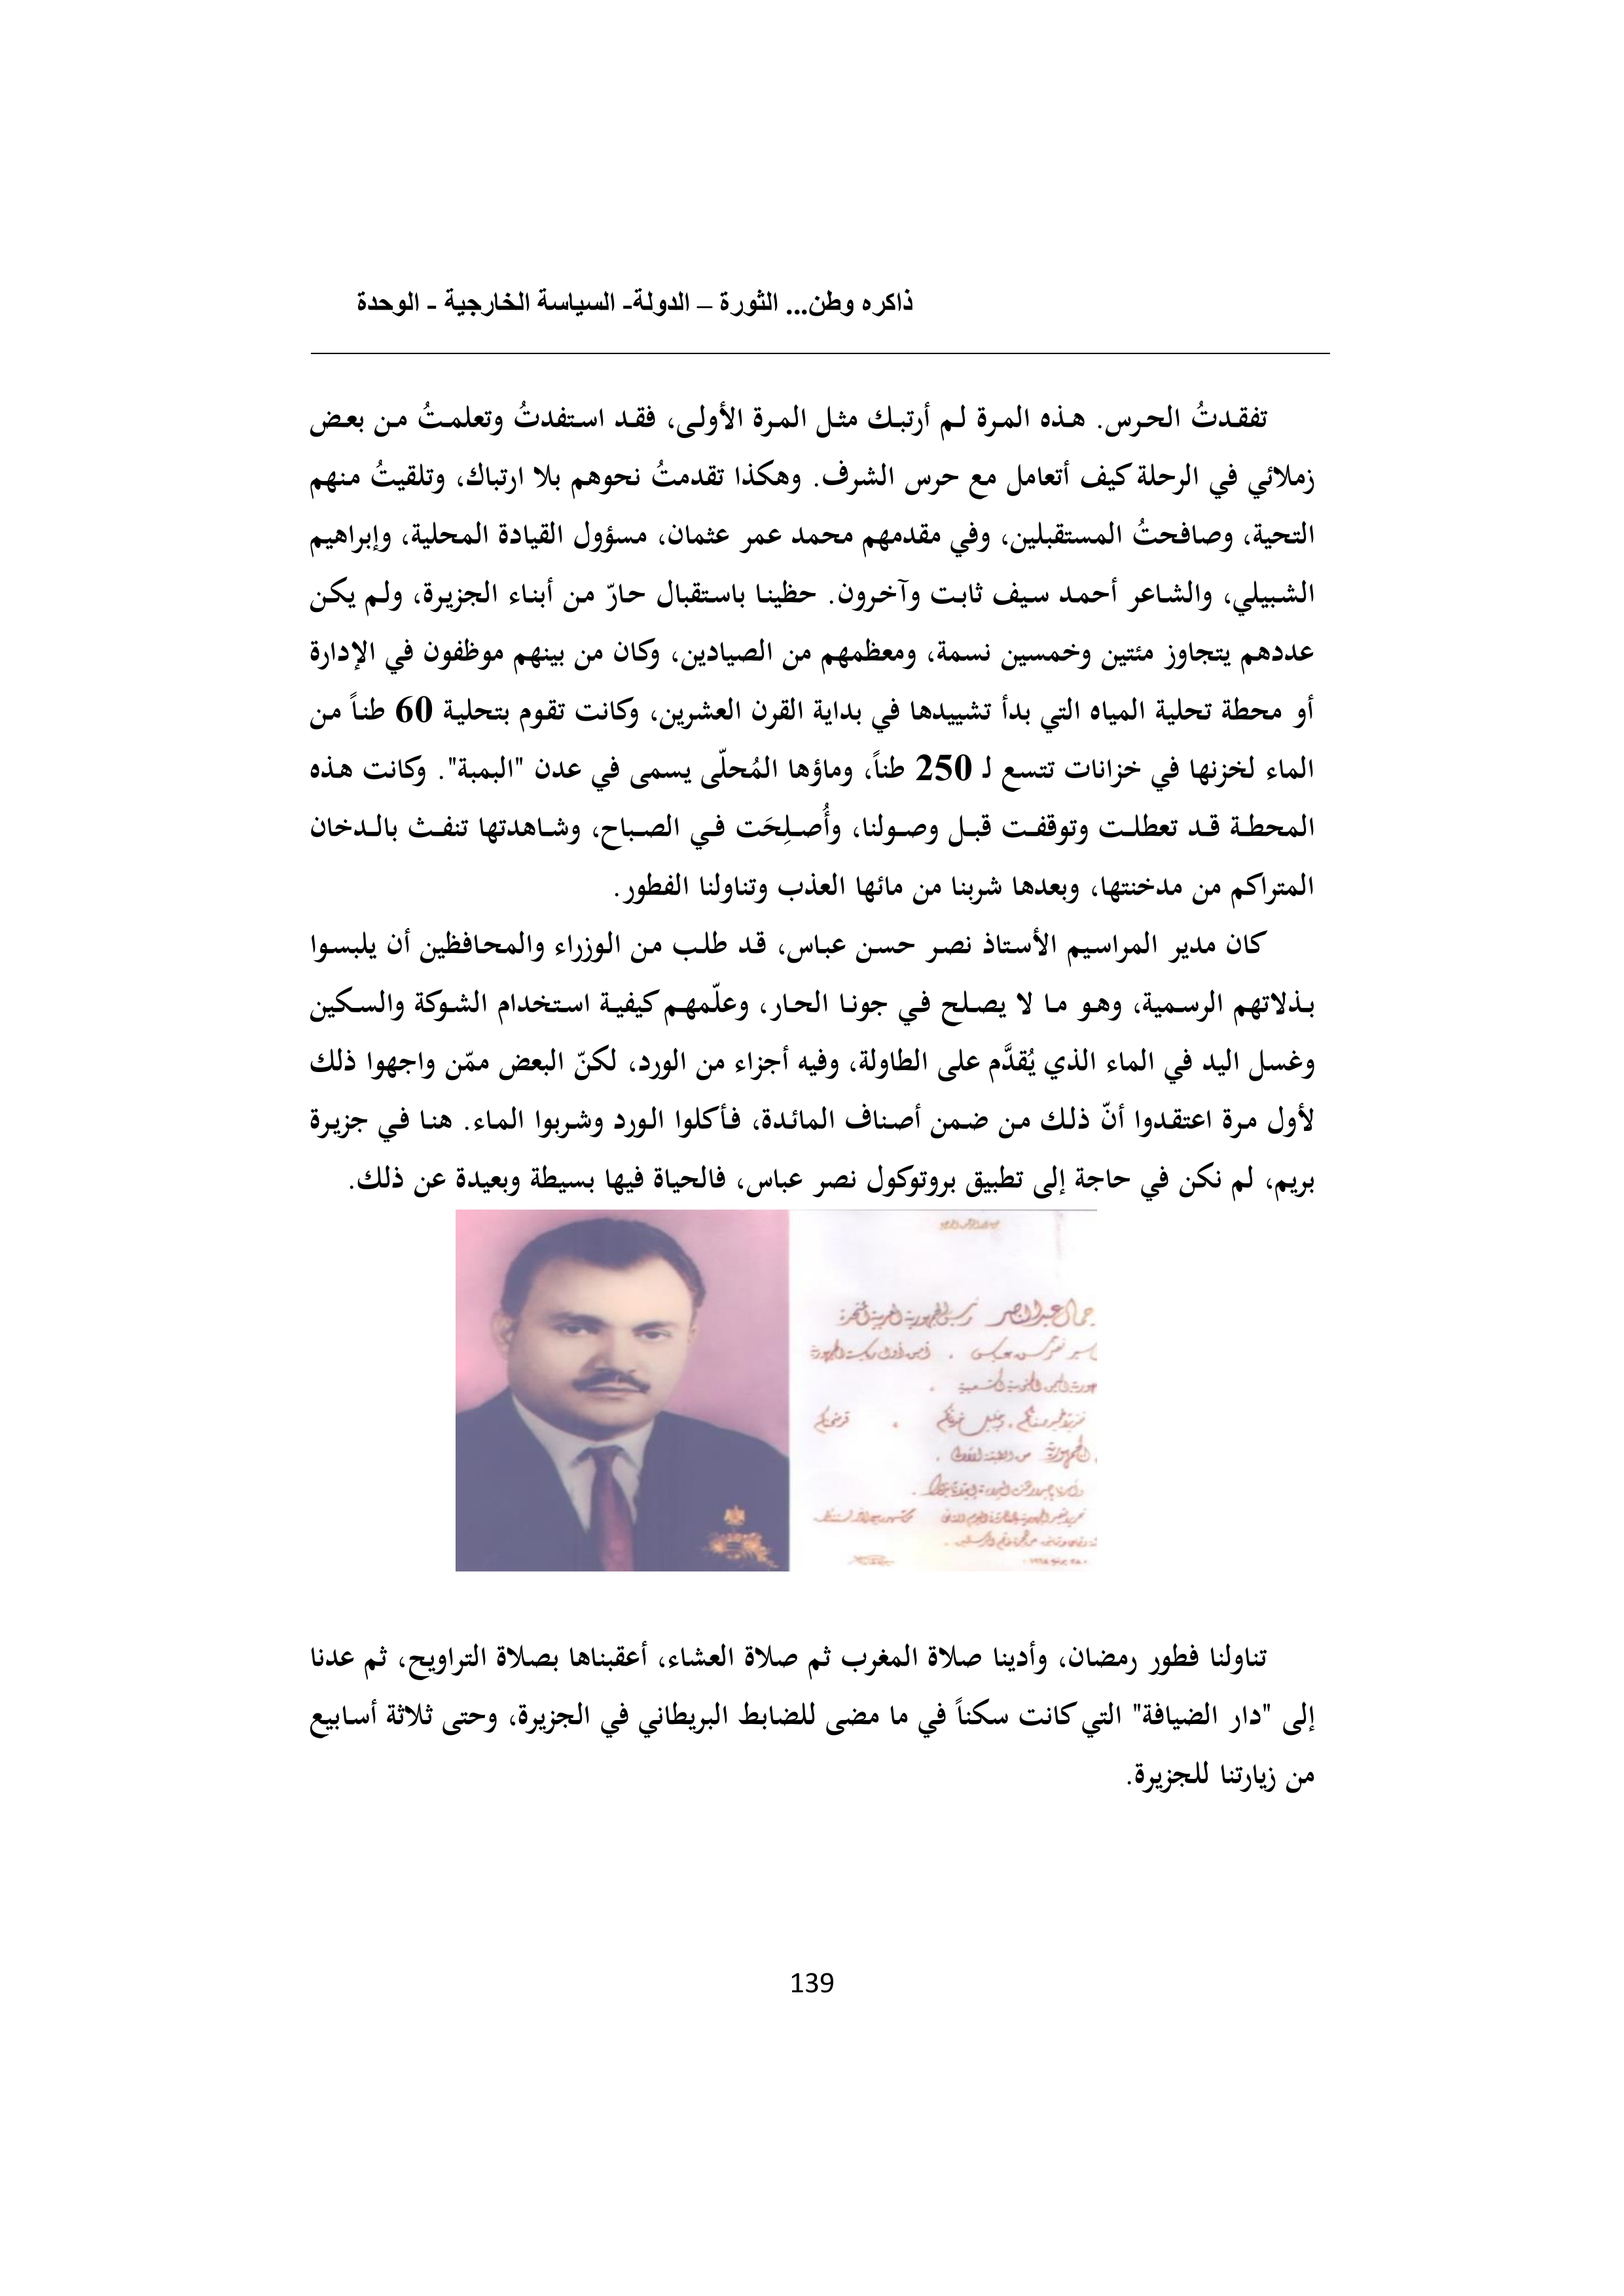 ذاكره وطن... الثورة – الدولة- السياسة الخارجية - الوحدة
تفقدتُ الحرس. هذه المرة لم أرتبك مثل المرة الأولى، فقد استفدتُ وتعلمتُ من بعض
زملائي في الرحلة كيف أتعامل مع حرس الشرف. وهكذا تقدمتُ نحوهم بلا ارتباك، وتلقيتُ منهم
التحية، وصافحتُ المستقبلين، وفي مقدمهم محمد عمر عثمان، مسؤول القيادة المحلية، وإبراهيم
الشبيلي، والشاعر أحمد سيف ثابت وآخرون. حظينا باستقبال حارّ من أبناء الجزيرة، ولم يكن
عددهم يتجاوز مئتين وخمسين نسمة، ومعظمهم من الصيادين، وكان من بينهم موظفون في الإدارة
أو محطة تحلية المياه التي بدأ تشييدها في بداية القرن العشرين، وكانت تقوم بتحلية 60 طناً من
الماء لخزنها في خزانات تتسع لـ 250 طناً، وماؤها المُحلّى يسمى في عدن "البمبة". وكانت هذه
المحطة قد تعطلت وتوقفت قبل وصولنا، وأُصلِحَت في الصباح، وشاهدتها تنفث بالدخان
المتراكم من مدخنتها، وبعدها شربنا من مائها العذب وتناولنا الفطور.
كان مدير المراسيم الأستاذ نصر حسن عباس، قد طلب من الوزراء والمحافظين أن يلبسوا
بذلاتهم الرسمية، وهو ما لا يصلح في جونا الحار، وعلّمهم كيفية استخدام الشوكة والسكين
وغسل اليد في الماء الذي يُقدَّم على الطاولة، وفيه أجزاء من الورد، لكنّ البعض ممّن واجهوا ذلك
لأول مرة اعتقدوا أنّ ذلك من ضمن أصناف المائدة، فأكلوا الورد وشربوا الماء. هنا في جزيرة
بريم، لم نكن في حاجة إلى تطبيق بروتوكول نصر عباس، فالحياة فيها بسيطة وبعيدة عن ذلك.
جمال عبد الناصر رئيس الجمهورية العربية المتحدة
تناولنا فطور رمضان، وأدينا صلاة المغرب ثم صلاة العشاء، أعقبناها بصلاة التراويح، ثم عدنا
إلى "دار الضيافة" التي كانت سكناً في ما مضى للضابط البريطاني في الجزيرة، وحتى ثلاثة أسابيع
من زيارتنا للجزيرة.
139